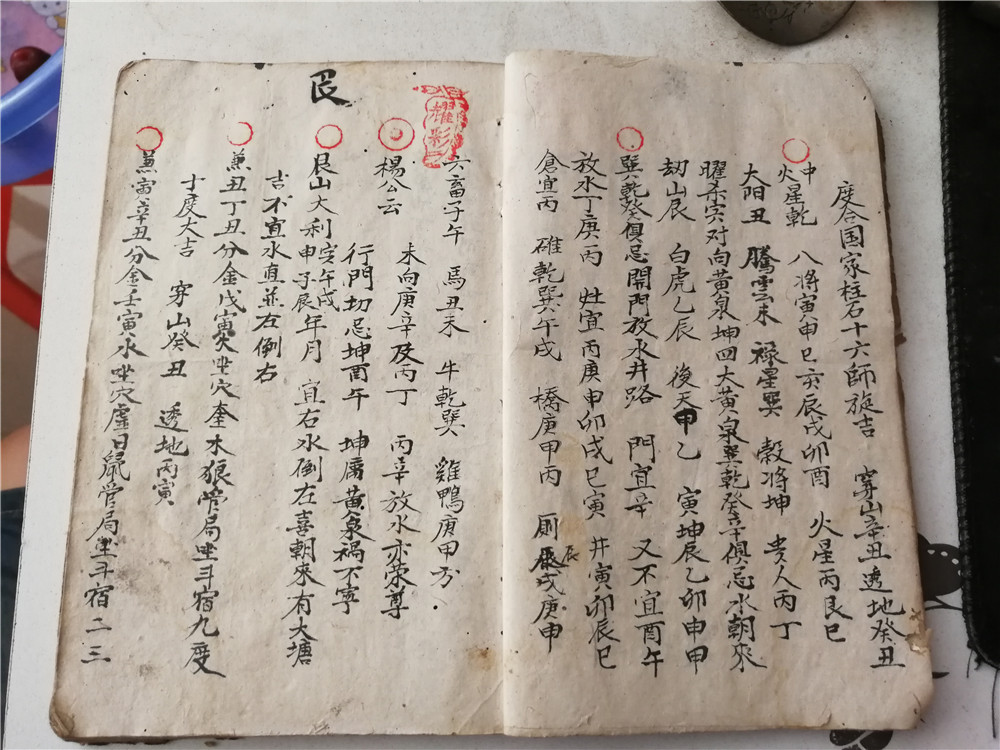 度合国家柱石十六師旋吉　穿山辛丑透地癸丑
申星乾　八将寅申巳亥辰戌卯酉　火星丙艮巳
大阳丑　騰雲未　禄星巽　穀将坤　贵人丙丁
曜杀宾对向黄泉坤四大黄泉巽乾癸辛俱忌水朝來
劫山辰　白虎乙辰　後天甲乙　寅坤辰乙卯申甲
巽乾癸俱忌開門放水井路　門宜辛　又不宜酉午
放水丁庚丙　灶宜丙庚申卯戌巳寅　井寅卯辰巳
倉宜丙　碓乾巽午戌　橋庚甲丙　厠辰戌庚申
艮
耀彩
六畜子午　馬丑未　牛乾巽　雞鴨庚甲方
楊公云　未向庚辛及丙丁　丙辛放水亦荣尊
行門切忌坤酉午　坤庚黄泉禍不寧
艮山大利寅午戌申子辰年月　宜右水倒左喜朝來有大塘
吉不宜水直並左倒右
兼丑丁丑分金戊寅火坐穴奎木狼管局坐斗宿九度
十度大吉　穿山癸丑　透地丙寅
兼寅辛丑分金壬寅水坐穴虚日鼠管局坐斗宿二三